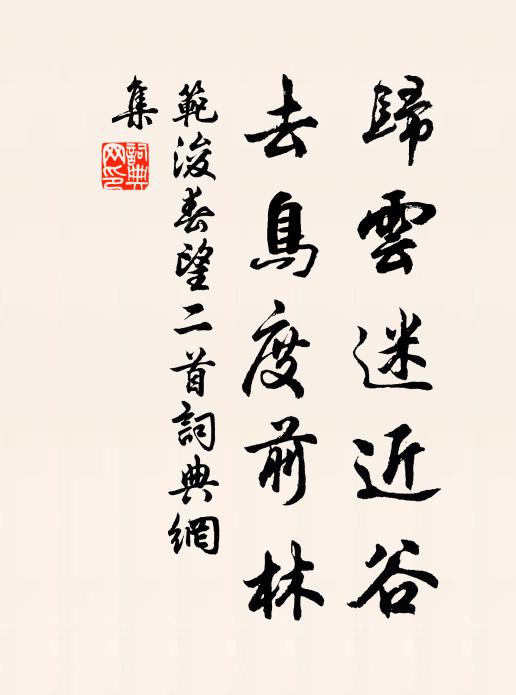 歸雲迷近谷
去鳥度前林
範浚春望二首詞典網
集
詞典
网印